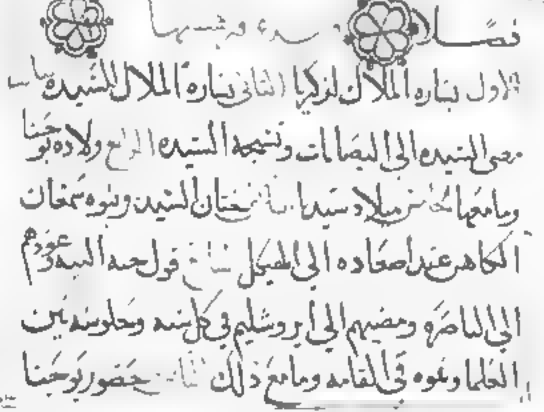 فصلا
الاول بشاره الملاك لزكريا الثاني بشاره الملاك للسيده
مضى السيده الى اليصابات وتسبحه السيده الرابع ولاده يوحنا
وما معها الخامس ميلاد سيدنا ختان السيد ونبوه سمعان
الكاهن عند اصعاده الى الهيكل السابع قول حنه النبيه وعودهم
الى الناصره ومضيهم الى ايروشليم في كل سنه وجلوسه بين
العلما ونموه في القامه وما مع ذلك الثامن حضور يوحنا